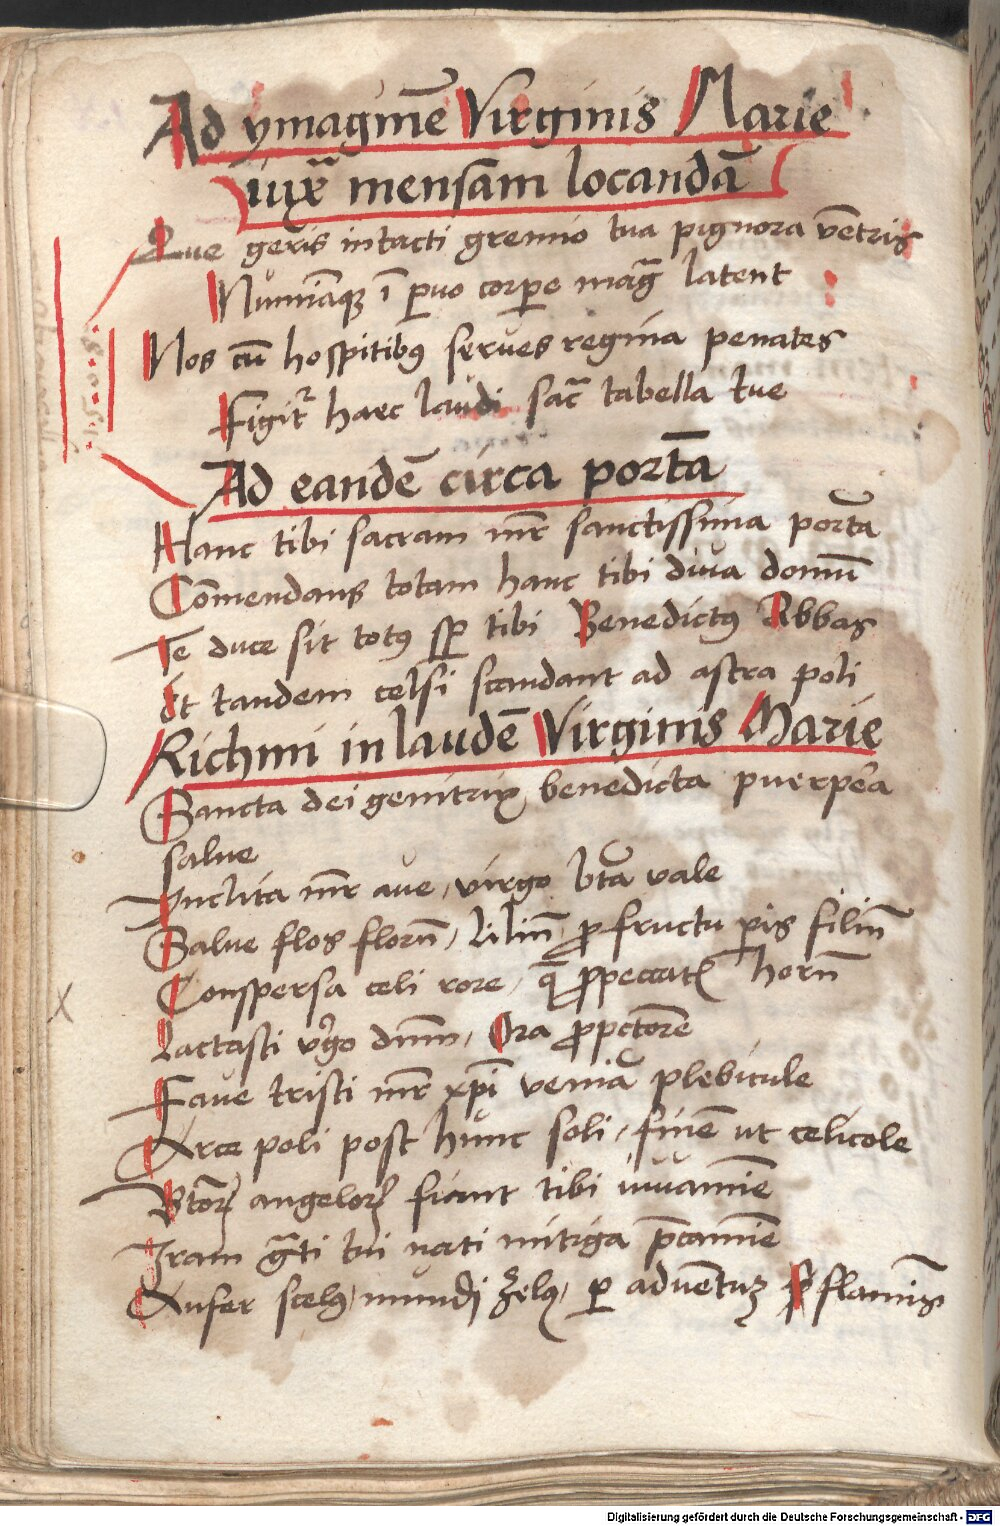 Ad ymaginē Virginis Marie
iuxᵃ mensam locandā
Que geris intacti gremio tua pignora vētris
Numiāqꝫ ī ꝑuo corꝑe magᷓ latent
Nos cū hospitibꝰ serues regina penates
Figitʳ haec laudi sacᷓ tabella tue
Ad eandē circa portā
Hanc tibi sacram mr̄ sanctissima portā
Cōmendans totam hanc tibi diua domū
Te duce sit totꝰ sꝑ tibi Benedictꝰ Abbas
Et tandem celsi scandant ad astra poli
Richmi in laudē Virginis Marie
Sancta dei genitrix benedicta puerpēa
salue
Inclita mr̄ aue, virgo btā vale
Salue flos florū, Liliū, ꝓ fructu ꝑis filiū
Conspersa celi rore, qᷓ ꝓ peccatꝭ horū
Lactasti vgͦo dnm̄, Ora ꝓ pctorē
Faue tristi mr̄ xp̄i veniā plebicule
Arce poli post hunc soli, finē ut celicole
Btōꝝ angeloꝝ fiant tibi iuuamīe
Iram gᷓti tui nati mitiga p̄camīe
Aufer scelꝰ, mundj zelꝰ, ꝑ aduētuꝫ flamīs
1508
Digitalisierung gefördert durch die Deutsche Forschungsgemeinschaft - DFG